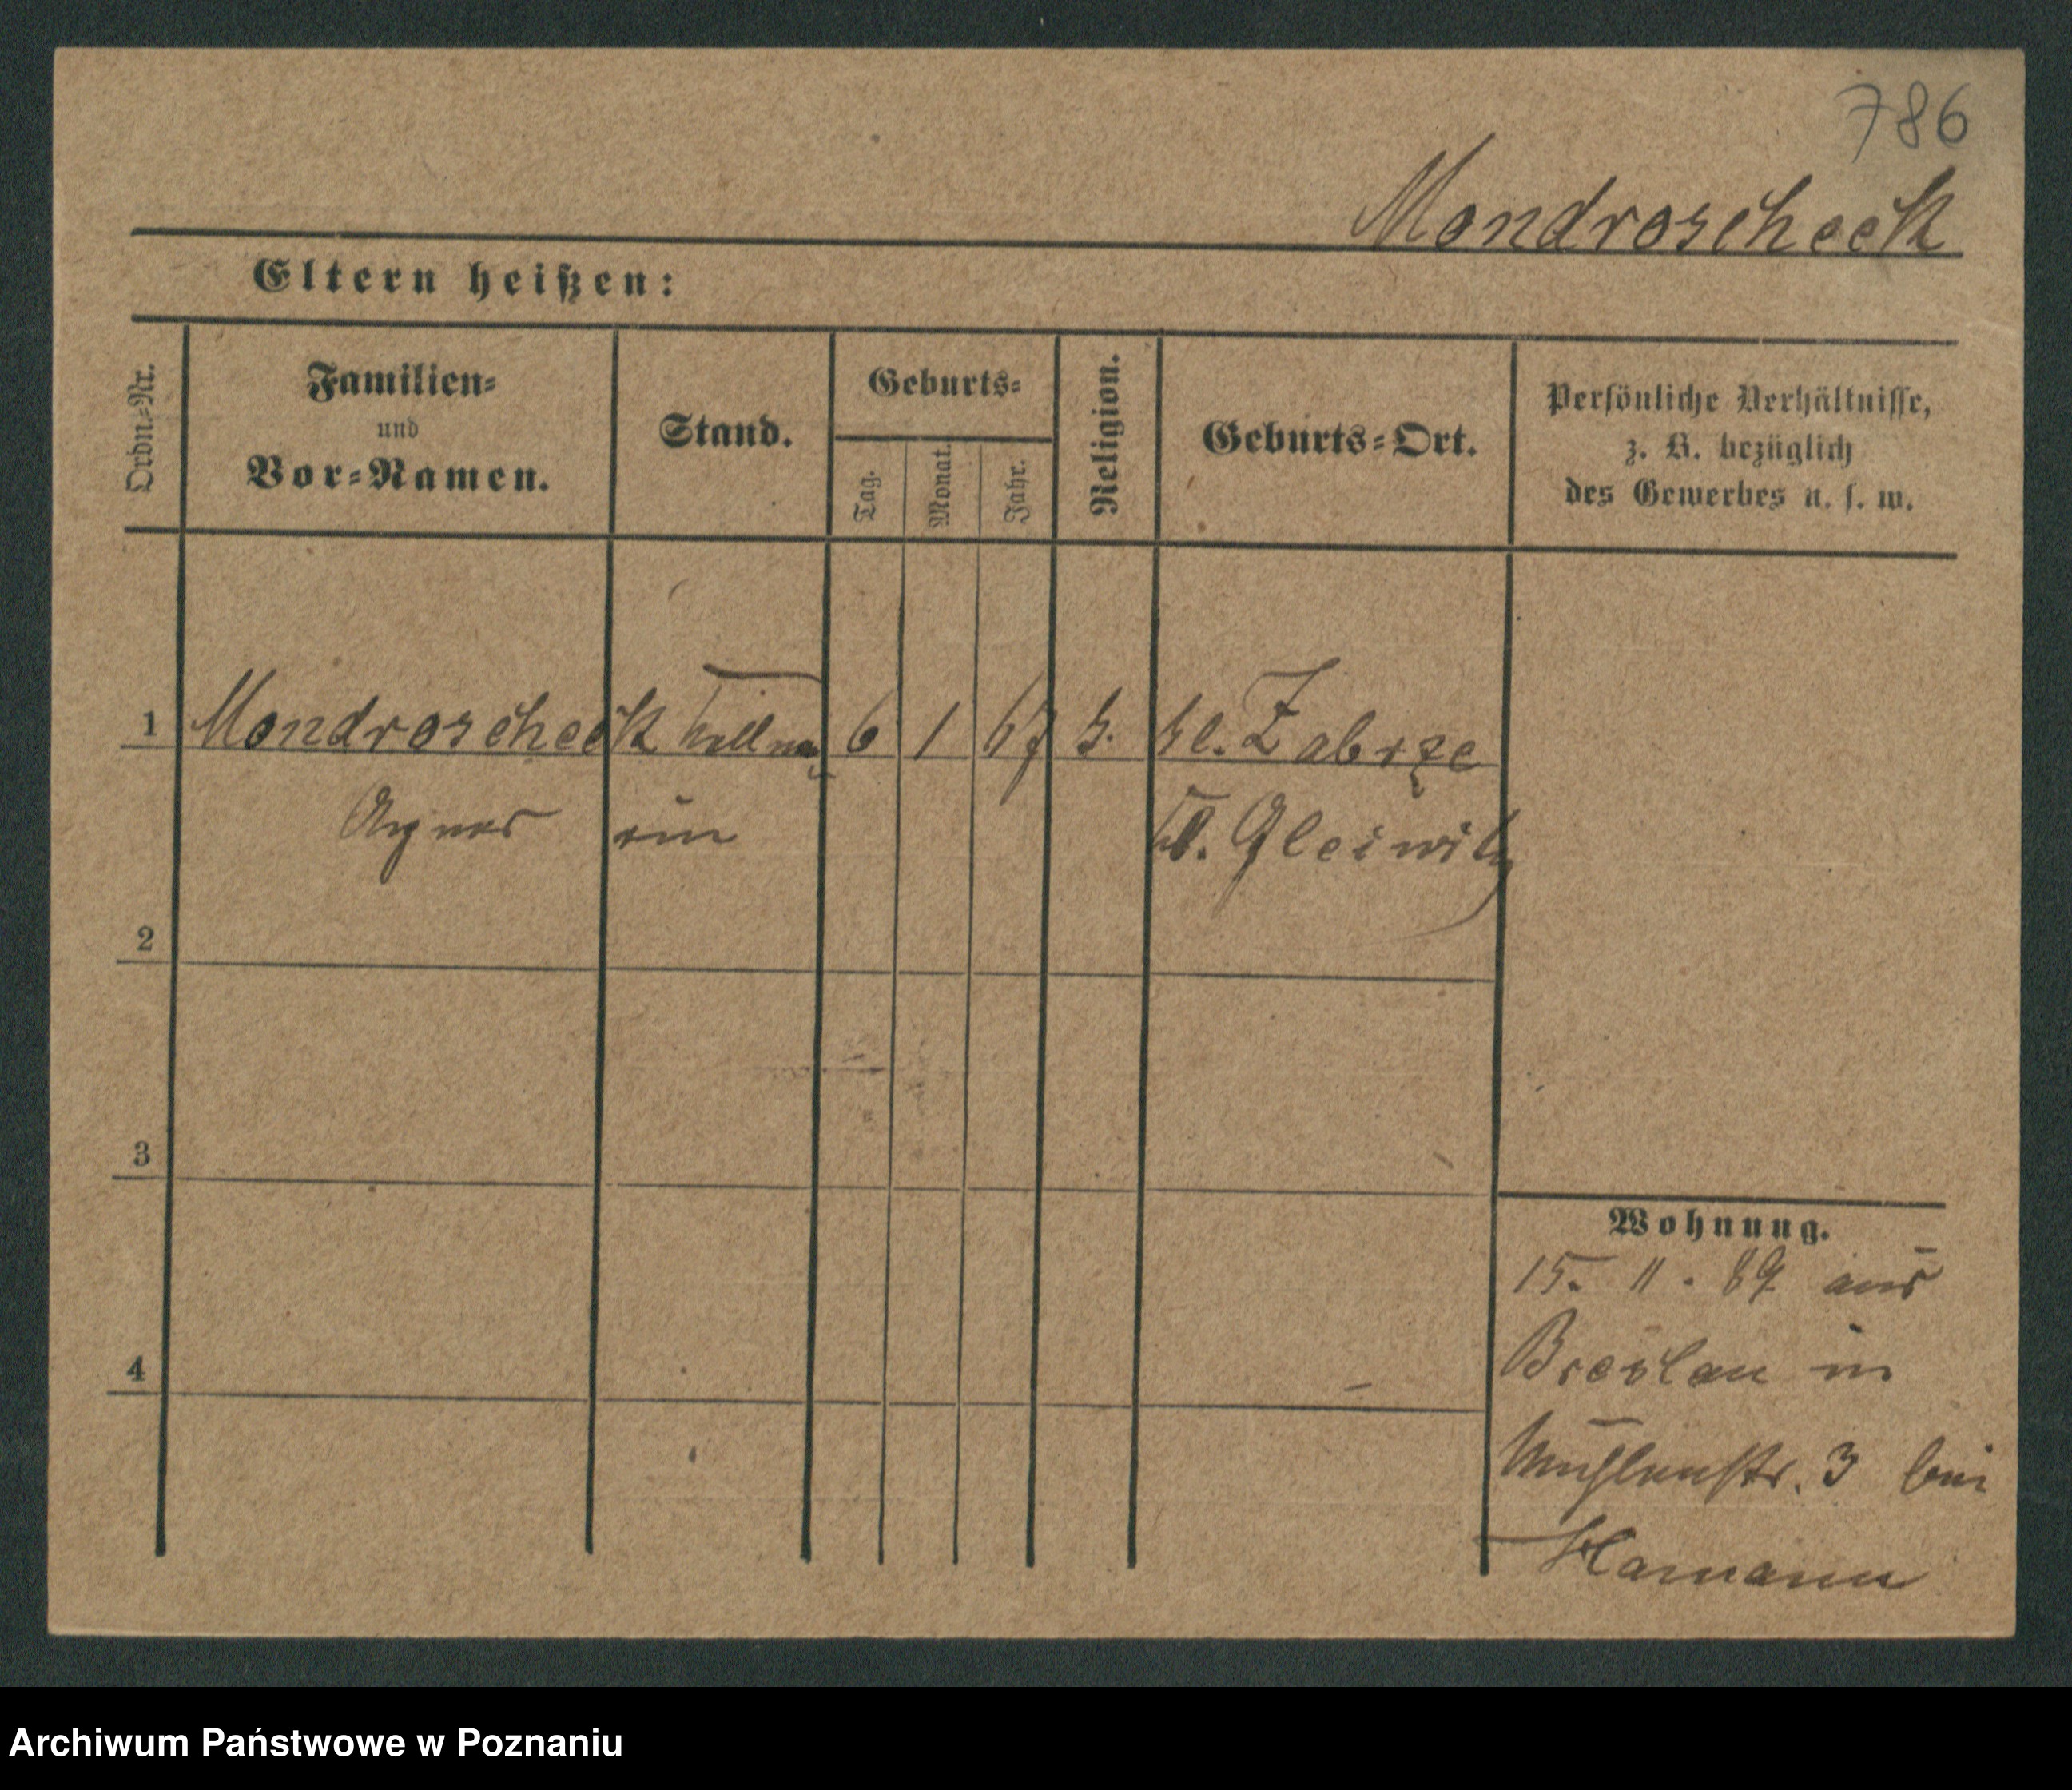 786
Mondroscheck
Eltern heißen:
Ordn.-Nr.
Familien-
und
Vor-Namen.
Stand.
Geburts-
Tag.
Monat.
Jahr.
Religion.
Geburts-Ort.
Persönliche Verhältnisse,
z. B. bezüglich
des Gewerbes u. s. w.
1 Mondroscheck Kellner 6 1 67 k. Kl. Zabrze
Agnes in Gleiwitz
2
3
4
Wohnung.
15. 11. 89 aus
Breslau in
Mühlenstr. 3 bei
Hamann
Archiwum Państwowe w Poznaniu